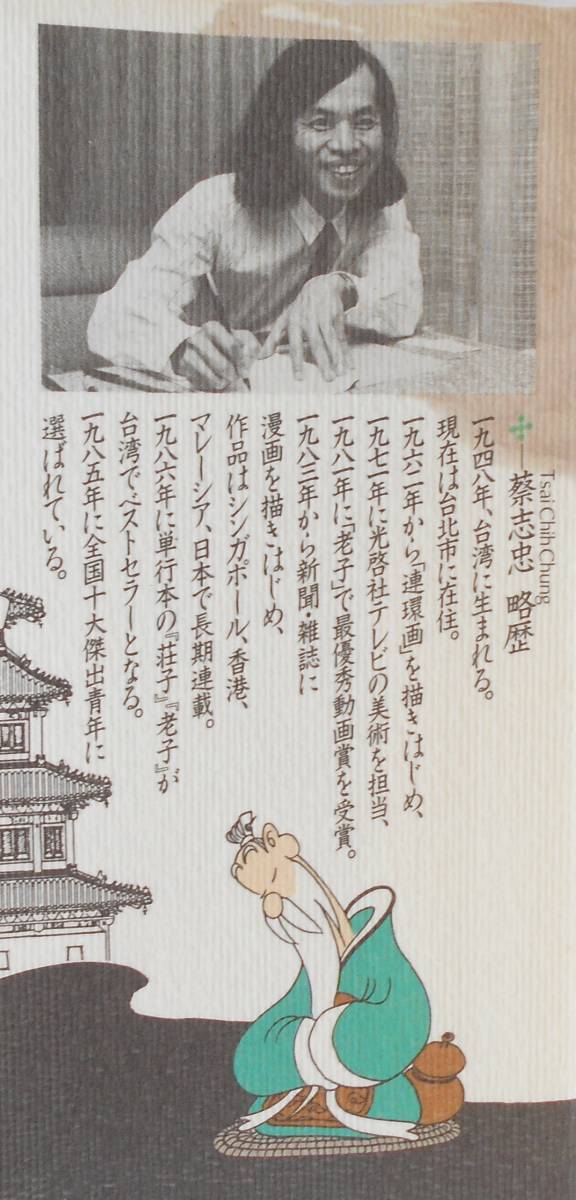 Tsai Chih Chung
蔡志忠 略歴
一九四八年、台湾に生まれる。
現在は台北市に在住。
一九六二年から「連環画」を描きはじめ、
一九七一年に光啓社テレビの美術を担当、
一九八一年に「老子」で最優秀動画賞を受賞。
一九八三年から新聞・雑誌に
漫画を描きはじめ、
作品はシンガポール、香港、
マレーシア、日本で長期連載。
一九八六年に単行本の『荘子』『老子』が
台湾でベストセラーとなる。
一九八五年に全国十大傑出青年に
選ばれている。